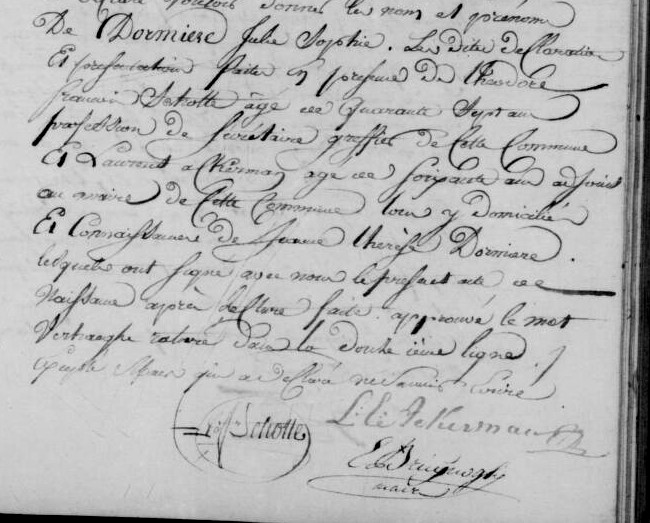 donner les nom et prénom
De Dormiere Julie Sophie. Les dites declaration
Et presentation faite en presence de theodore
françois Schotte âgé de quarante Sept ans
profession de Secretaire greffier de Cette Commune
Et Laurent ackerman age de soixante ans adjoint
au maire de Cette Commune tous y domicilié
Et Connaissances de Jeanne thérèse Dormiere.
lesquels ont signe avec nous le present acte de
Naissance après lecture faite. approuvé le mot
Verhaeghe raturé dans la douzième ligne.
Excepté qui a declaré ne savoir Ecrire
Schotte
L: Ackerman
maire